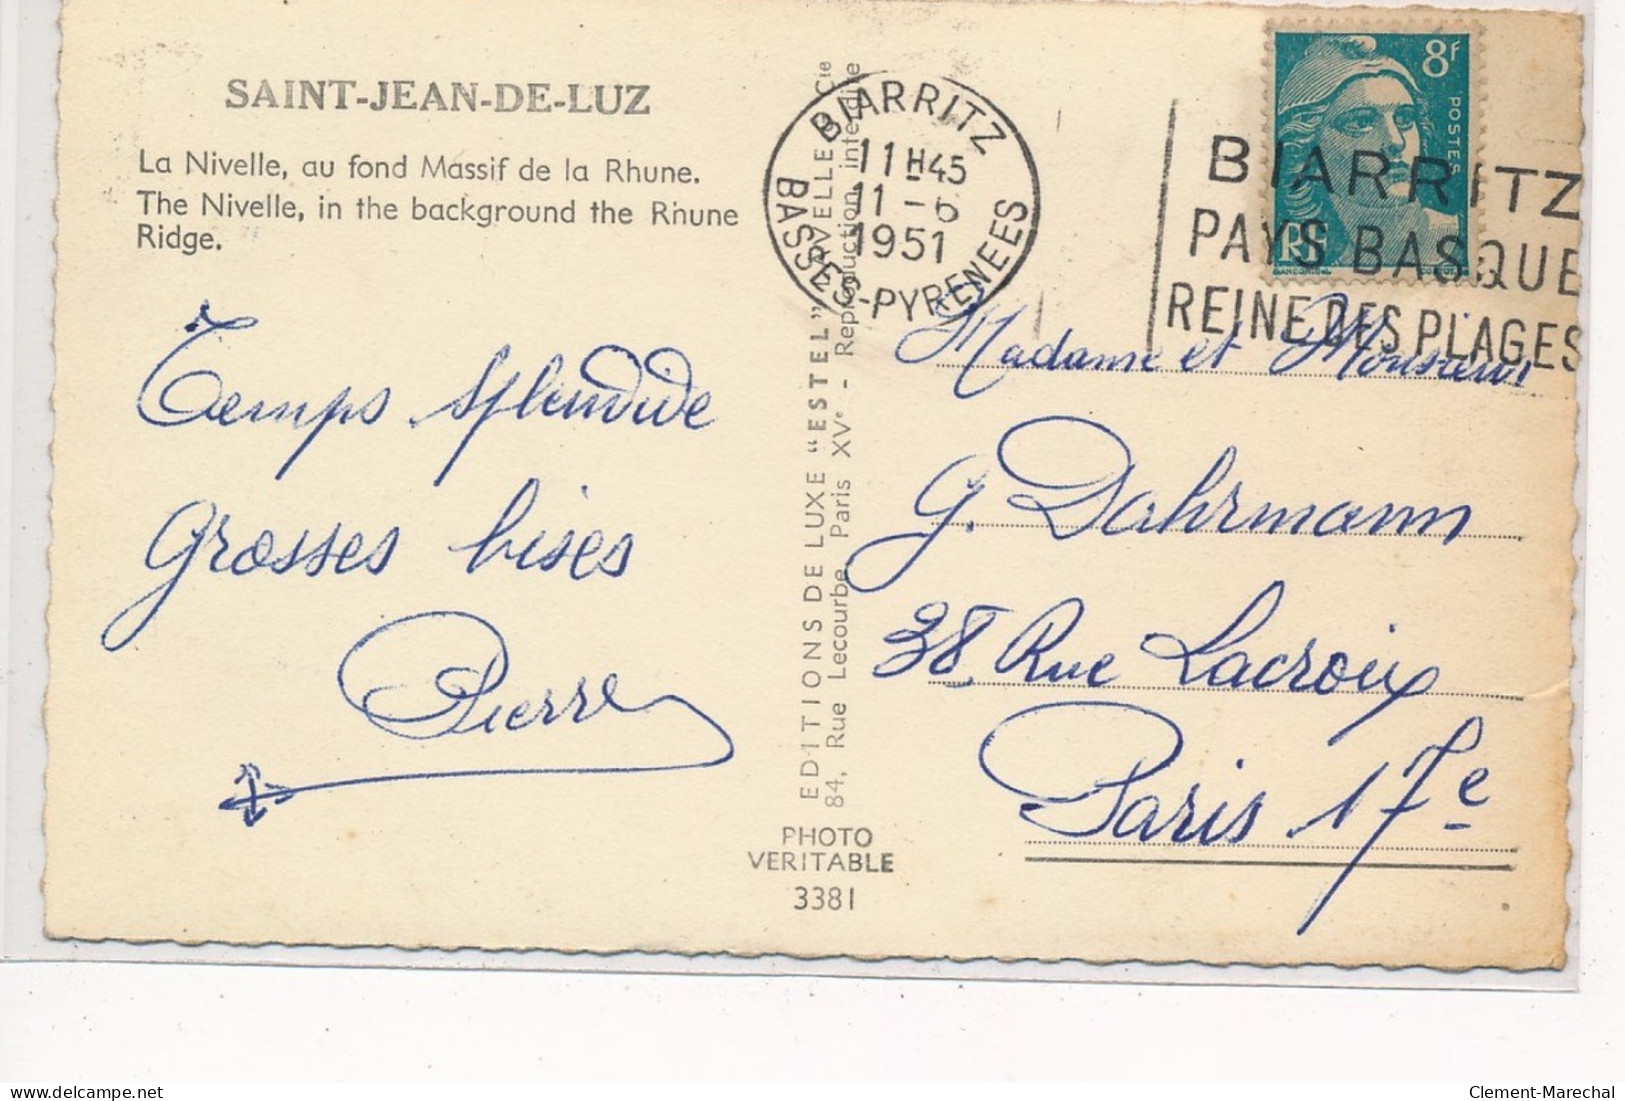 SAINT-JEAN-DE-LUZ
La Nivelle, au fond Massif de la Rhune.
The Nivelle, in the background the Rhune
Ridge.
Temps splendide
Grosses bises
Pierre
EDITIONS DE LUXE "ESTEL" LAVELLE & Cie
84, Rue Lecourbe, Paris XVe - Reproduction interdite
PHOTO
VERITABLE
3381
BIARRITZ
11 H 45
11 - 6
1951
BASSES-PYRENEES
8F
POSTES
RF
GANDON
BIARRITZ
PAYS BASQUE
REINE DES PLAGES
Madame et Monsieur
G. Dahrmann
38 Rue Lacroix
Paris 17e
Clement-Marechal